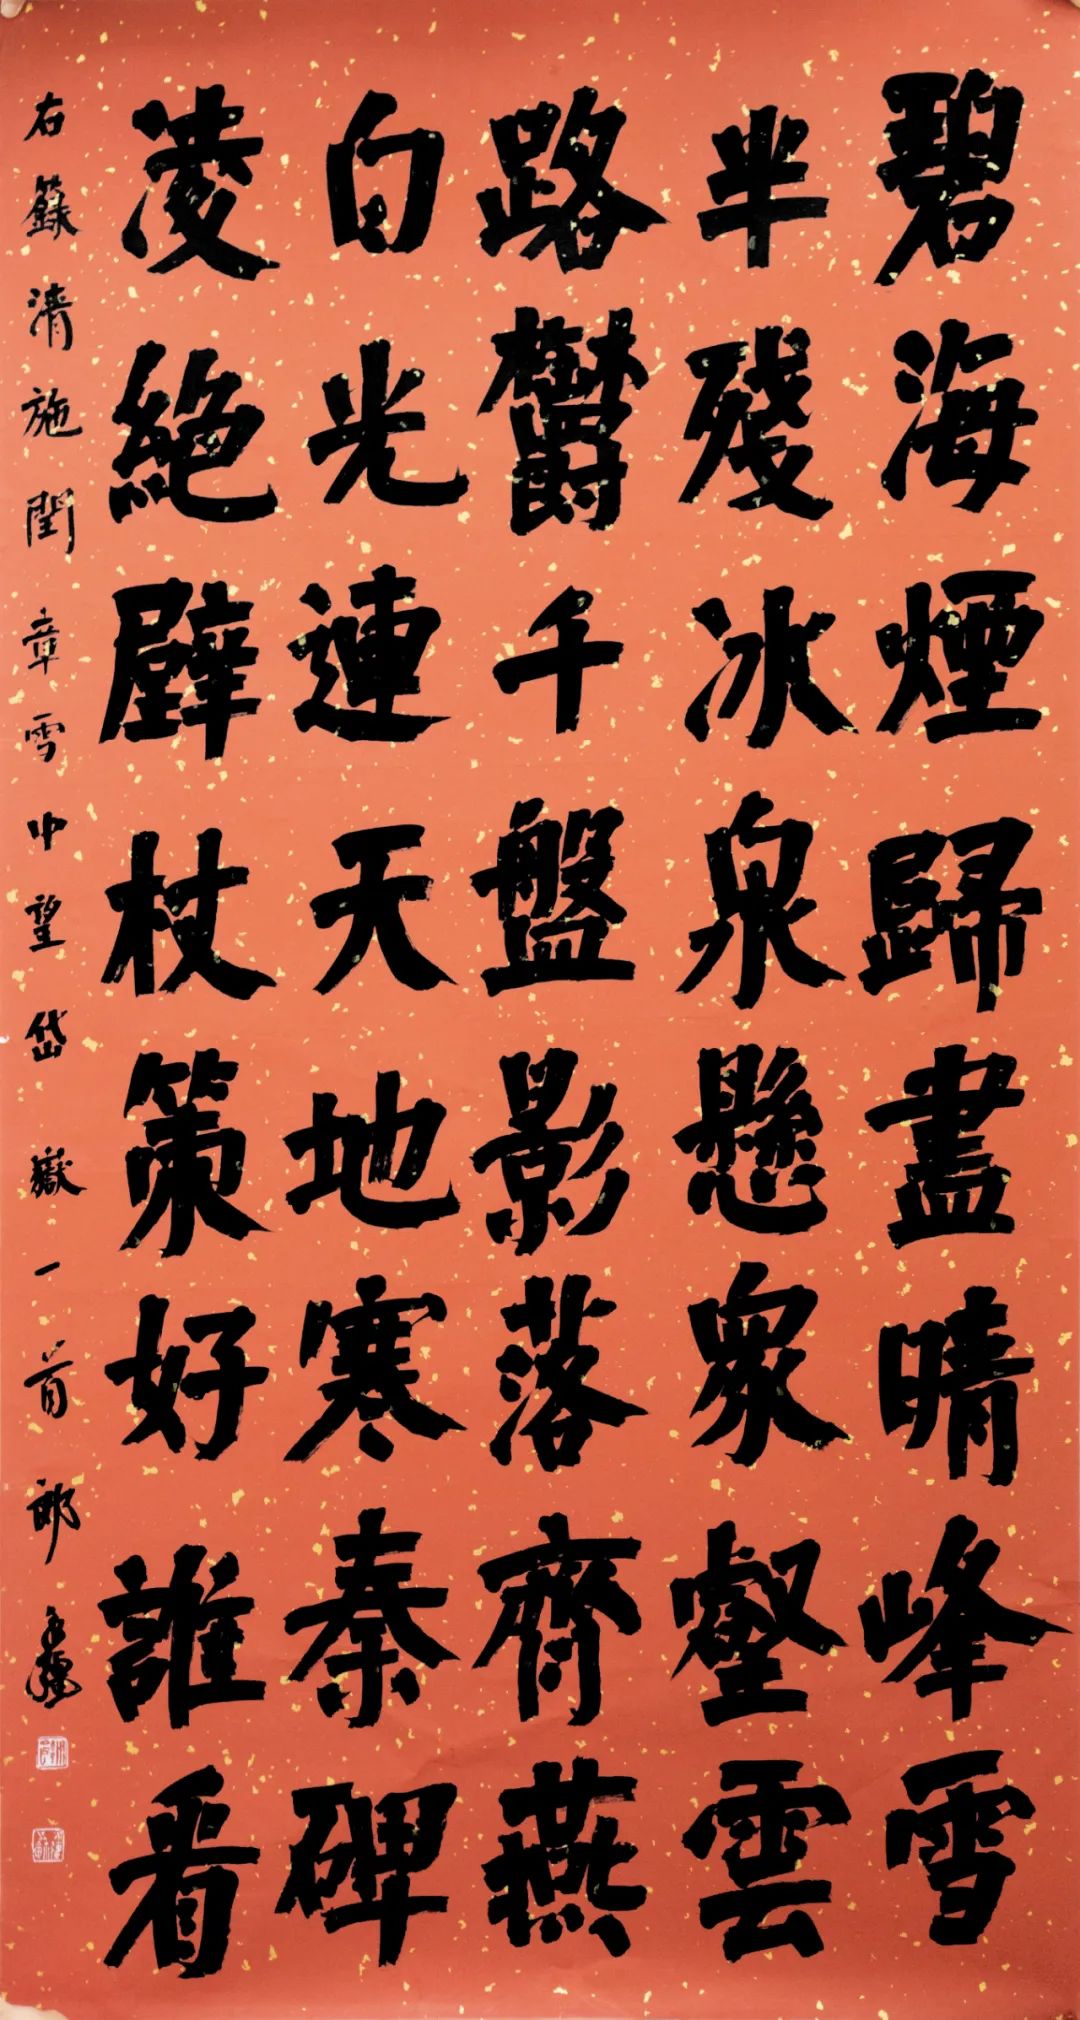 碧海煙歸盡晴峰雪
半殘冰泉懸衆壑雲
路鬱千盤影落齊燕
白光連天地寒秦碑
凌絕壁杖策好誰看
右錄清施閏章雪中望岱嶽一首